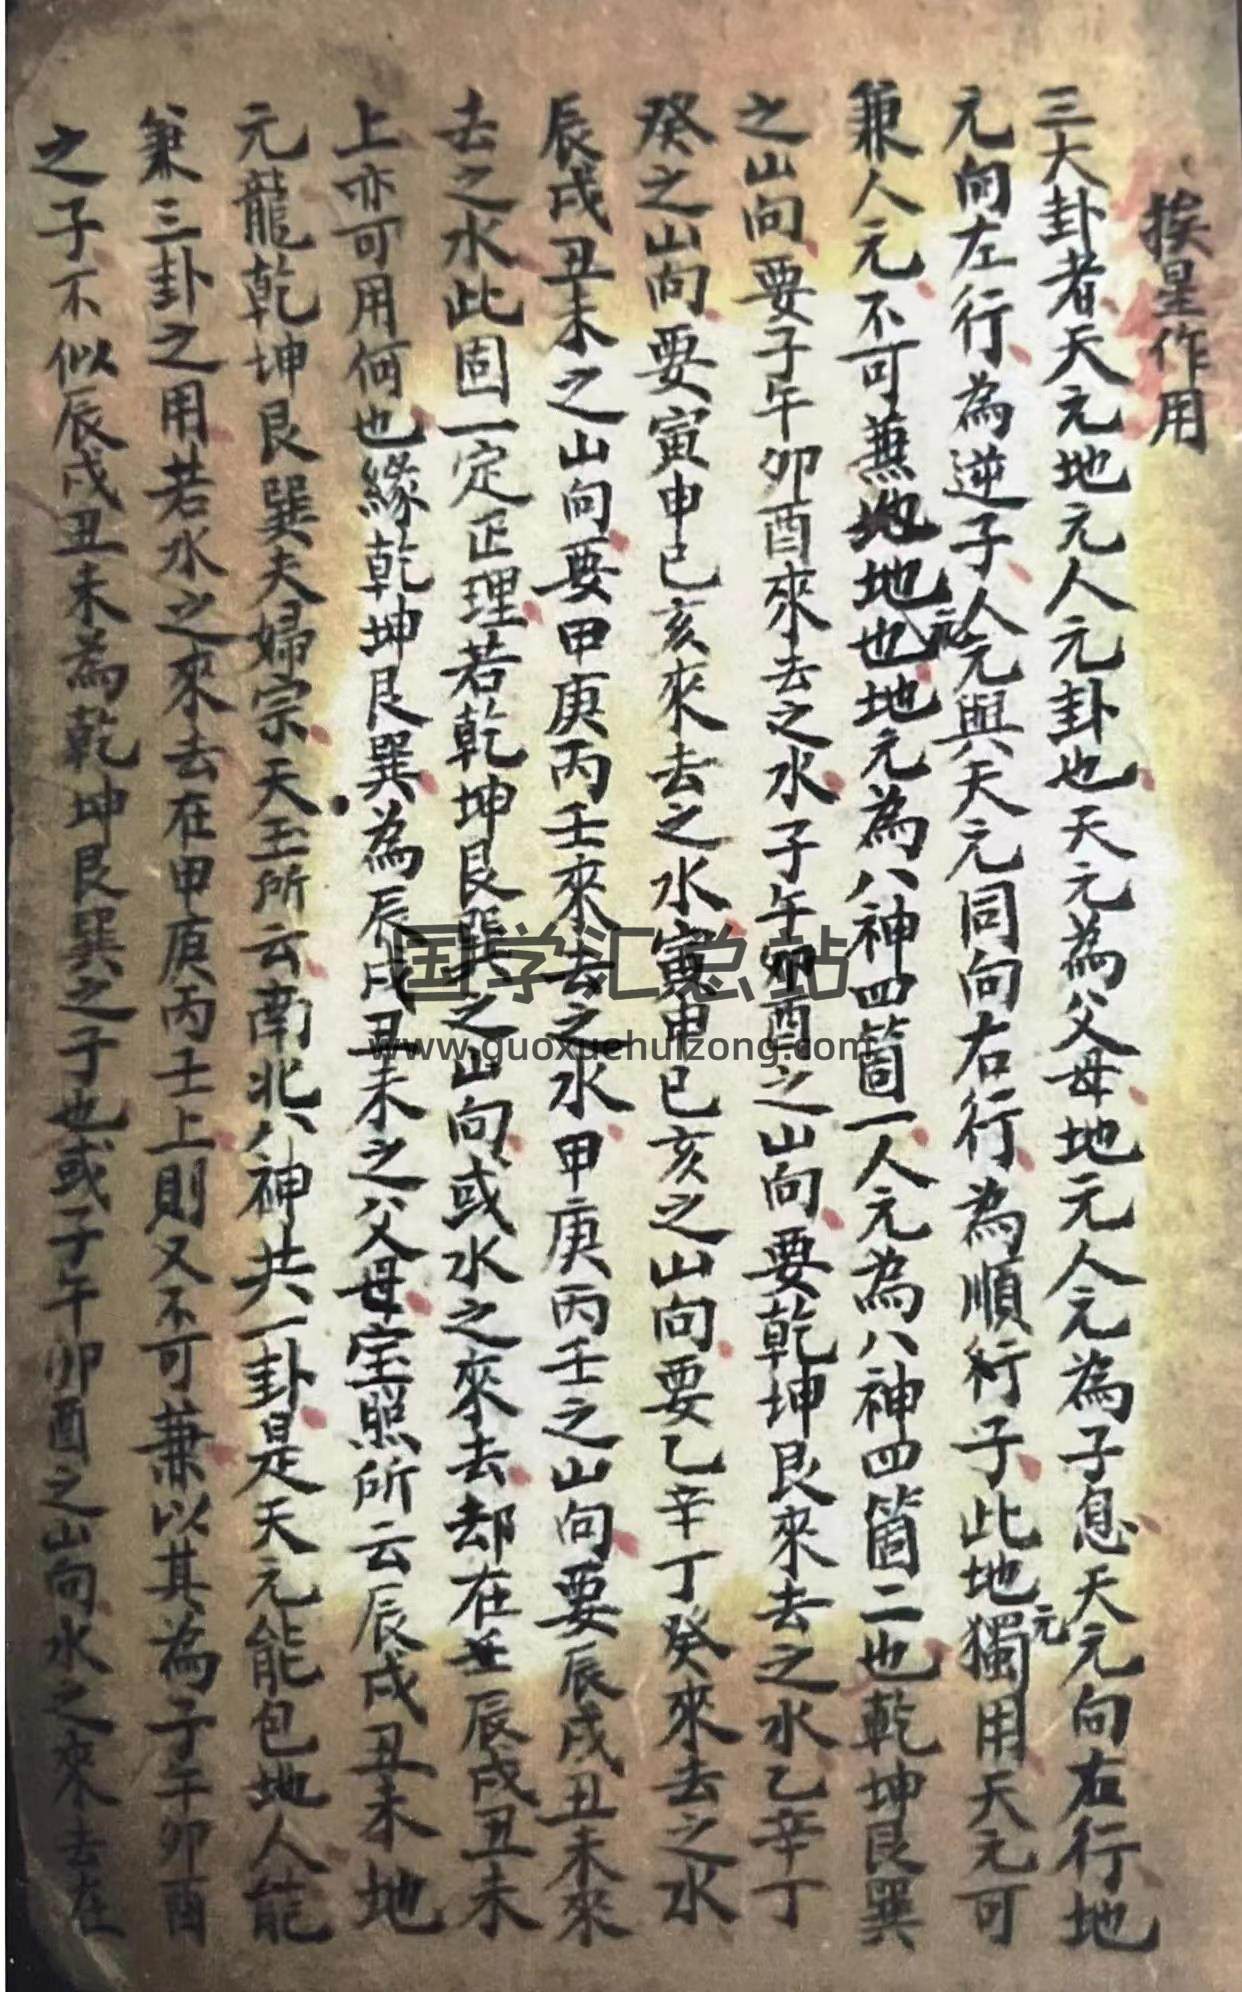 挨星作用
三大卦者天元地元人元卦也天元為父母地元人元為子息天元向右行地
元向左行為逆子人元與天元同向右行為順行子此地元獨用天元可
兼人元不可兼地地元也地元為八神四箇一人元為八神四箇二也乾坤艮巽
之山向要子午卯酉來去之水子午卯酉之山向要乾坤艮巽來去之水乙辛丁
癸之山向要寅申巳亥來去之水寅申巳亥之山向要乙辛丁癸來去之水
辰戌丑未之山向要甲庚丙壬來去之水甲庚丙壬之山向要辰戌丑未來
去之水此固一定正理若乾坤艮巽之山向或水之來去却在辰戌丑未
上亦可用何也緣乾坤艮巽為辰戌丑未之父母宝照所云辰戌丑未地
元龍乾坤艮巽夫婦宗天玉所云南北八神共一卦是天元能包地人能
兼三卦之用若水之來去在甲庚丙壬上則又不可兼以其為子午卯酉
之子不似辰戌丑未為乾坤艮巽之子也或子午卯酉之山向水之來去在
国学汇总站
www.guoxuehuizong.com